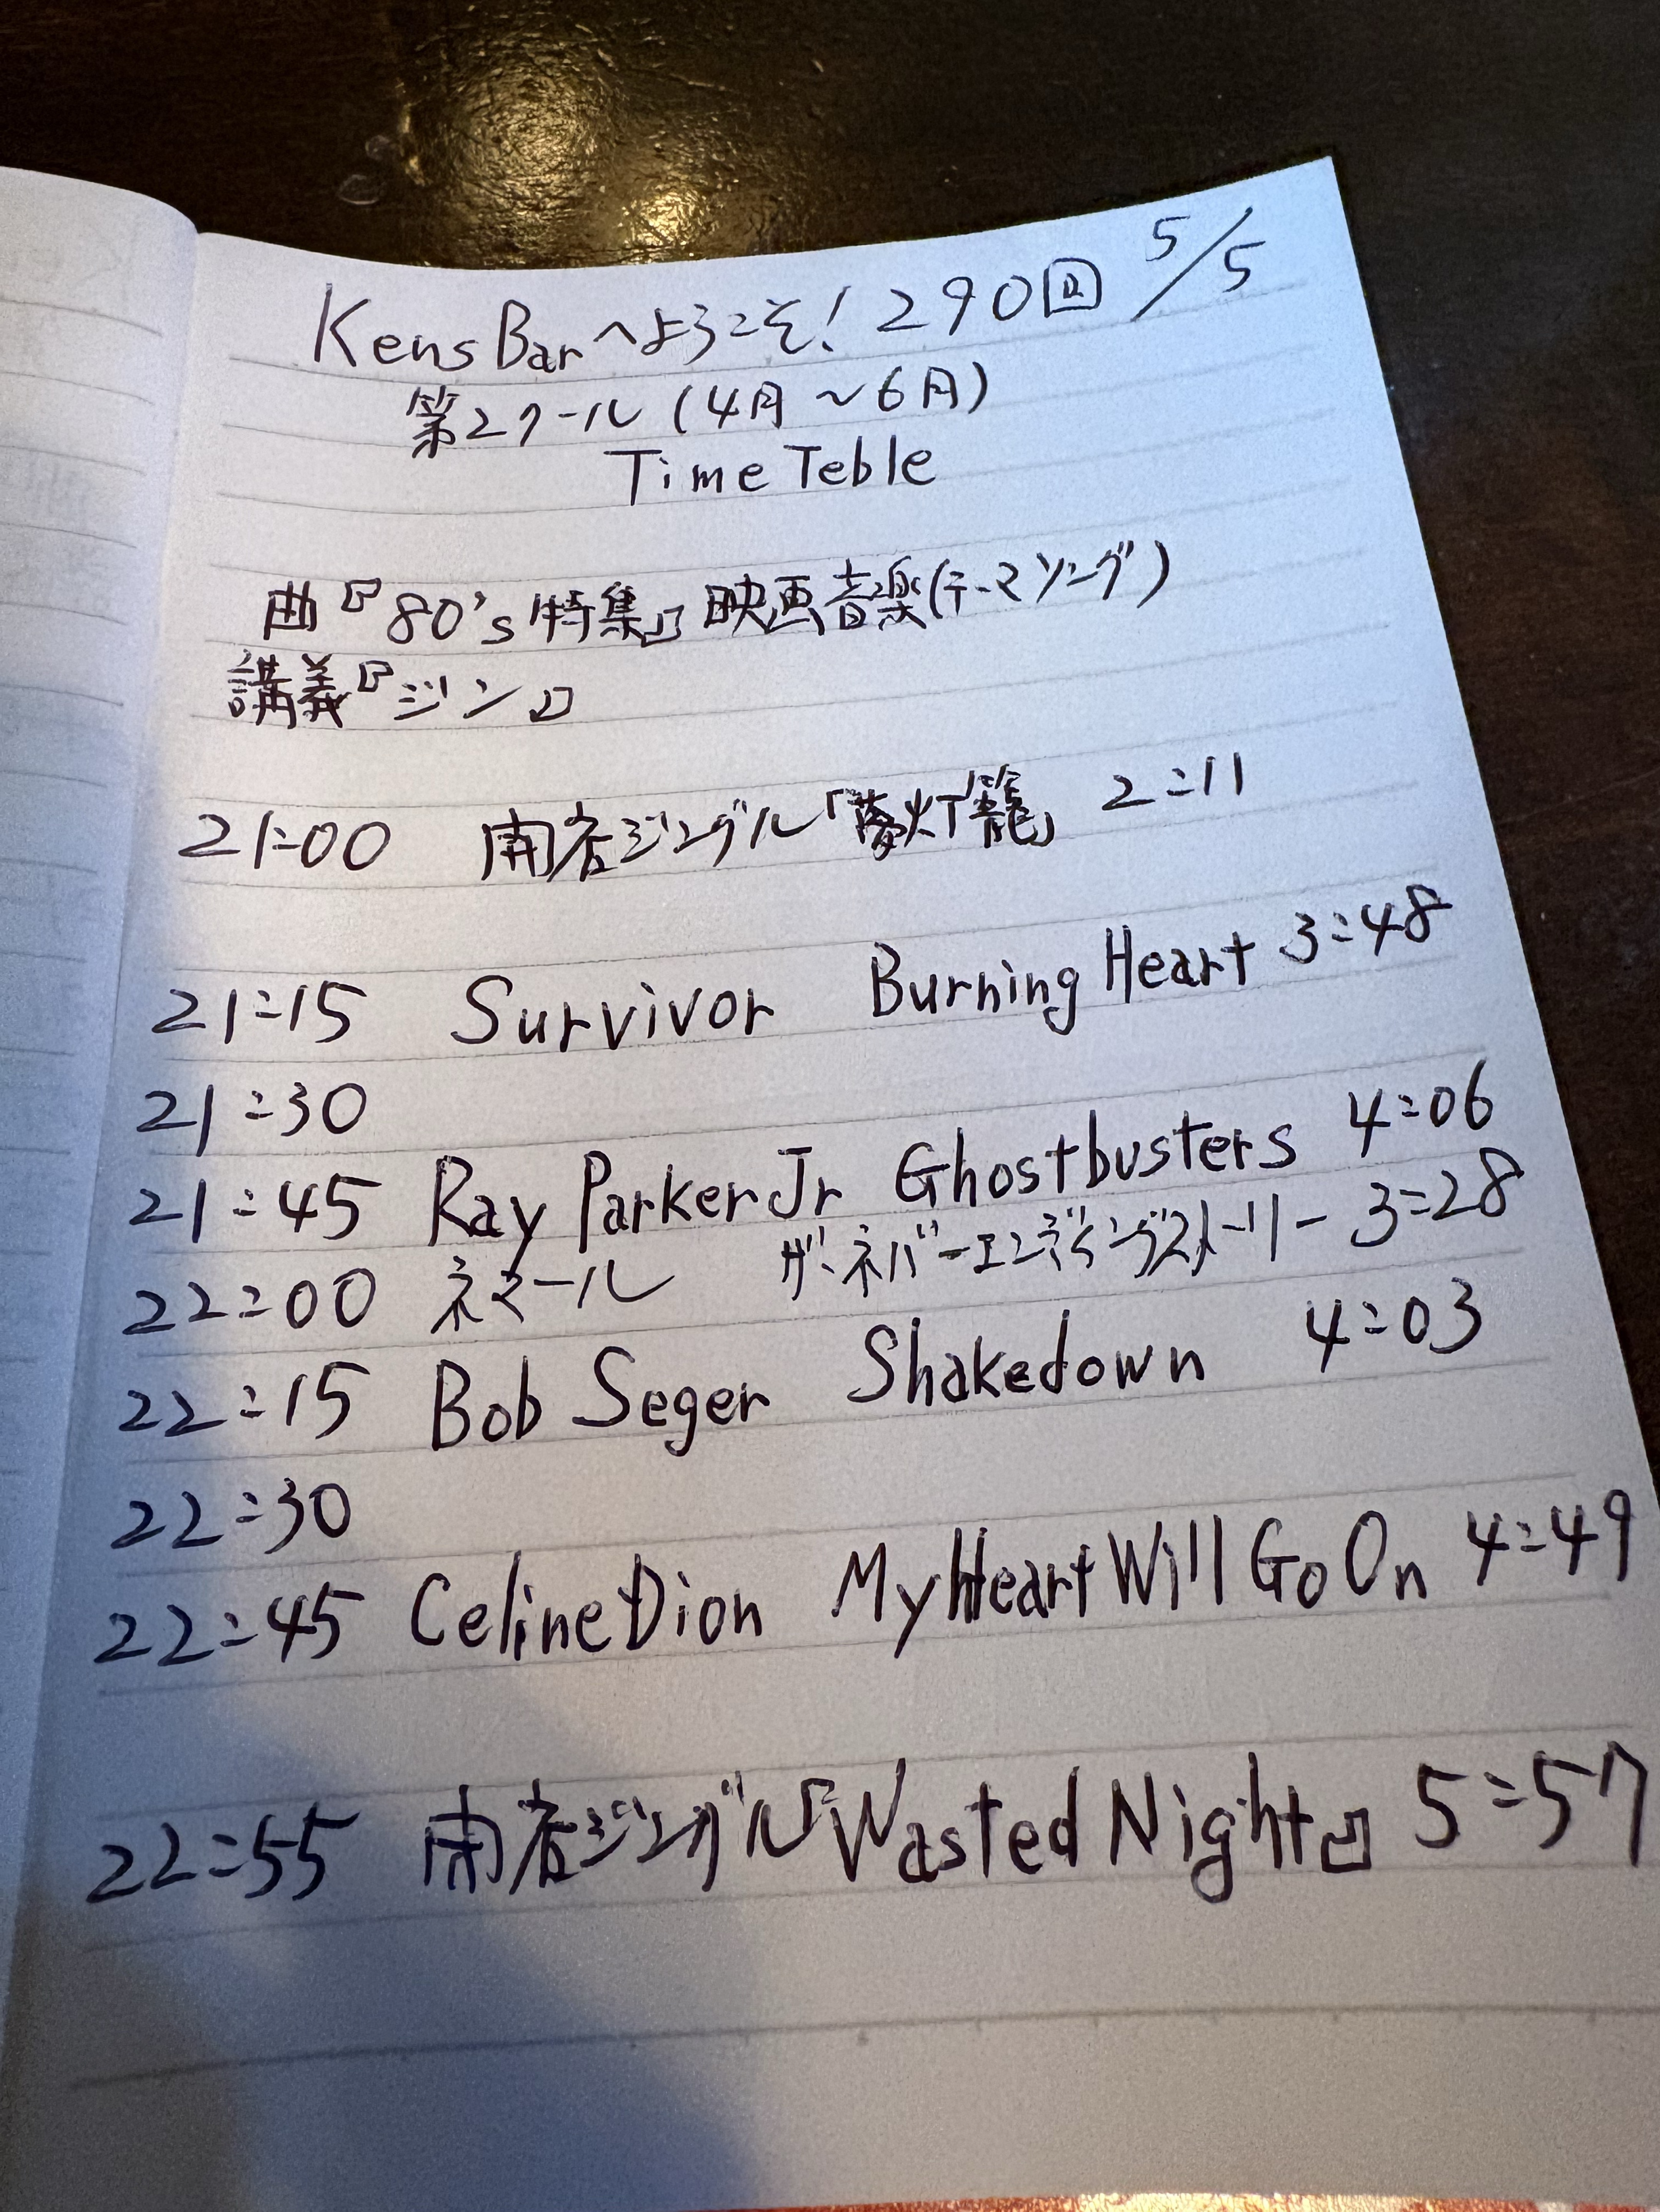 Kens Barへようこそ! 290回 5/5
第2クール (4月～6月)
Time Teble
曲『80's特集』映画音楽(テーマソング)
講義『ジン』
21:00 開店ジングル「夢灯籠」 2:11
21:15 Survivor Burning Heart 3:48
21:30
21:45 Ray Parker Jr Ghostbusters 4:06
22:00 ネマール ザ・ネバーエンディングストーリー 3:28
22:15 Bob Seger Shakedown 4:03
22:30
22:45 Celine Dion My Heart Will Go On 4:49
22:55 閉店ジングル『Wasted Night』 5:57